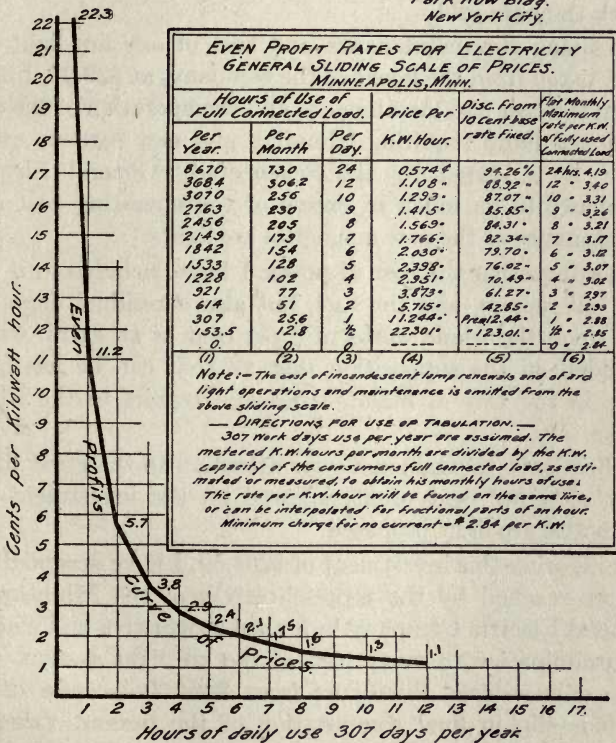 Park Row Bldg.
New York City.
EVEN PROFIT RATES FOR ELECTRICITY
GENERAL SLIDING SCALE OF PRICES.
MINNEAPOLIS, MINN.
Hours of Use of Full Connected Load. Price Per K.W. Hour. Disc. From 10 Cent base rate Fixed. Flat Monthly Maximum rate per K.W. of fully used Connected Load
Per Year. Per Month Per Day.
8670 730 24 0.574¢ 94.26% 24 hrs. 4.19
3684 306.2 12 1.108 " 88.92 " 12 " 3.40
3070 256 10 1.293 " 87.07 " 10 " 3.31
2763 230 9 1.415 " 85.85 " 9 " 3.26
2456 205 8 1.569 " 84.31 " 8 " 3.21
2149 179 7 1.766 " 82.34 " 7 " 3.17
1842 154 6 2.030 " 79.70 " 6 " 3.12
1533 128 5 2.398 " 76.02 " 5 " 3.07
1228 102 4 2.951 " 70.49 " 4 " 3.02
921 77 3 3.873 " 61.27 " 3 " 2.97
614 51 2 5.715 " 42.85 " 2 " 2.93
307 25.6 1 11.244 " Prem 12.44 " 1 " 2.88
153.5 12.8 ½ 22.301 " " 123.01 " ½ " 2.85
0. 0. 0 ----- ----- 0 " 2.84
(1) (2) (3) (4) (5) (6)
Note:- The cost of incandescent lamp renewals and of arc
light operations and maintenence is emitted from the
above sliding scale.
— DIRECTIONS FOR USE OF TABULATION. —
307 Work days use per year are assumed. The
metered K.W. hours per month are divided by the K.W.
capacity of the consumers full connected load, as esti-
mated or measured, to obtain his monthly hours of use.
The rate per K.W. hour will be found on the same line,
or can be interpolated for fractional parts of an hour.
Minimum charge for no current = $2.84 per K.W.
Cents per Kilowatt hour.
22
21
20
19
18
17
16
15
14
13
12
11
10
9
8
7
6
5
4
3
2
1
22.3
11.2
5.7
3.8
2.9
2.4
2.1
1.75
1.6
1.3
1.1
Even Profits Curve of Prices.
1. 2 3 4 5 6 7 8 9 10 11 12 13 14 15 16 17.
Hours of daily use 307 days per year.